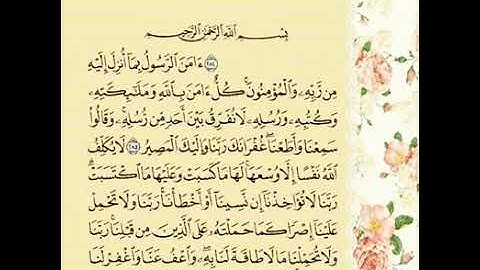 بِسْمِ اللَّهِ الرَّحْمَٰنِ الرَّحِيمِ
﴿٢٨٤﴾ ءَامَنَ الرَّسُولُ بِمَا أُنزِلَ إِلَيْهِ
مِن رَّبِّهِۦ وَالْمُؤْمِنُونَ ۚ كُلٌّ ءَامَنَ بِاللَّهِ وَمَلَٰٓئِكَتِهِۦ
وَكُتُبِهِۦ وَرُسُلِهِۦ لَا نُفَرِّقُ بَيْنَ أَحَدٍ مِّن رُّسُلِهِۦ ۚ وَقَالُوا
سَمِعْنَا وَأَطَعْنَا ۖ غُفْرَانَكَ رَبَّنَا وَإِلَيْكَ الْمَصِيرُ ﴿٢٨٥﴾ لَا يُكَلِّفُ
اللَّهُ نَفْسًا إِلَّا وُسْعَهَا ۚ لَهَا مَا كَسَبَتْ وَعَلَيْهَا مَا اكْتَسَبَتْ ۗ
رَبَّنَا لَا تُؤَاخِذْنَا إِن نَّسِينَا أَوْ أَخْطَأْنَا ۚ رَبَّنَا وَلَا تَحْمِلْ
عَلَيْنَا إِصْرًا كَمَا حَمَلْتَهُۥ عَلَى الَّذِينَ مِن قَبْلِنَا ۚ رَبَّنَا
وَلَا تُحَمِّلْنَا مَا لَا طَاقَةَ لَنَا بِهِۦ ۖ وَاعْفُ عَنَّا وَاغْفِرْ لَنَا